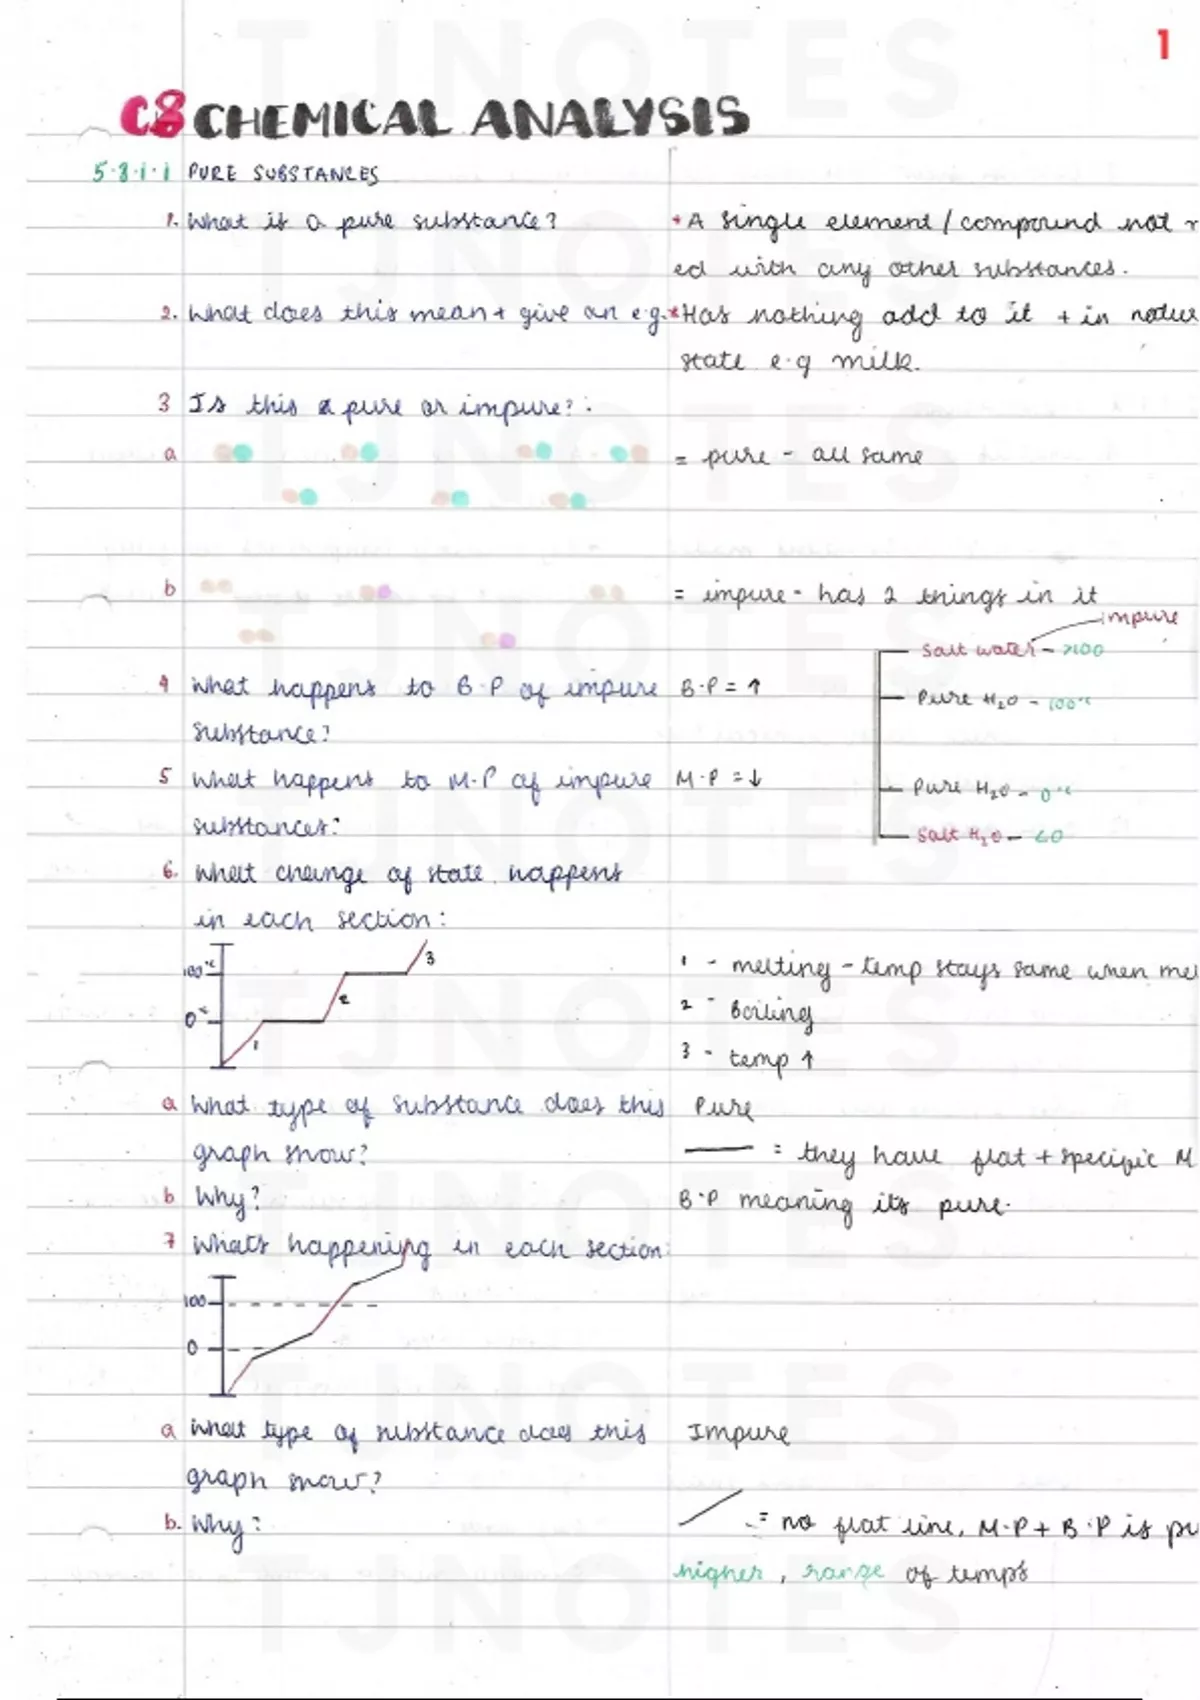 1
C8 CHEMICAL ANALYSIS
5.8.1.1 PURE SUBSTANCES
1. What is a pure substance?
* A single element / compound not
ed with any other substances.
2. What does this mean + give an e.g.
* Has nothing add to it + in
state e.g milk.
3 Is this a pure or impure?:
a
= pure - all same
b
= impure - has 2 things in it
impure
Salt water - >100
Pure H₂O - 100°C
Pure H₂O - 0°C
Salt H₂O - <0
4 What happens to B.P of impure
substance?
B.P = ↑
5 What happens to M.P of impure
substances?
M.P = ↓
6. What change of state happens
in each section:
100°C
0°C
1
2
3
1 - melting - temp stays same when
2 - Boiling
3 - temp ↑
a What type of substance does this
graph show?
Pure
b Why?
= they have flat + specific M
B.P meaning its pure.
7 Whats happening in each section:
100
0
a What type of substance does this
graph show?
Impure
b. Why?
= no flat line, M.P + B.P is
higher, range of temps
TJNOTES
TJNOTES
TJNOTES
TJNOTES
TJNOTES
TJNOTES
TJNOTES
TJNOTES
TJNOTES